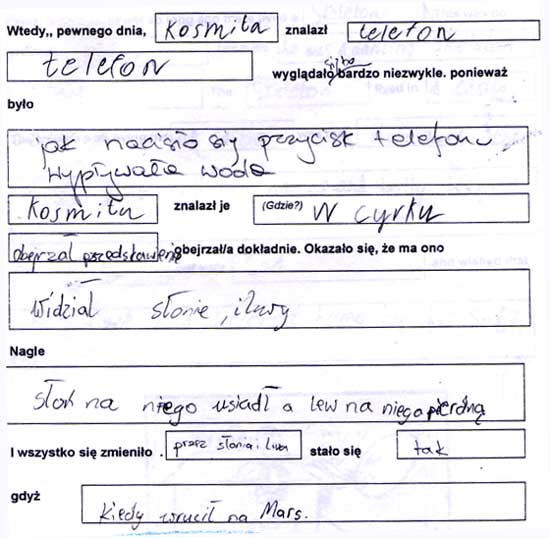 Wtedy,, pewnego dnia, kosmita znalazł telefon
telefon wyglądało bardzo niezwykle. ponieważ
było
jak nacisło się przycisk telefonu
wypływała woda
kosmita znalazł je (Gdzie?) w cyrku
obejrzał przedstawienie obejrzał/a dokładnie. Okazało się, że ma ono
widział słonie, i lwy
Nagle
słoń na niego usiadł a lew na niego pierdną
I wszystko się zmieniło . przez słonia i lwa stało się tak
gdyż
kiedy wrucił na Mars.